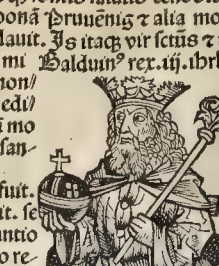 bonā Pruuēnig ⁊ alia mo
dauit. Is itaqꝫ vir sctūs ⁊
mi Balduin⁹ rex.iij.ihrl
non//
edi/
m mo
san-
fuit.
it. se
untio
o re-